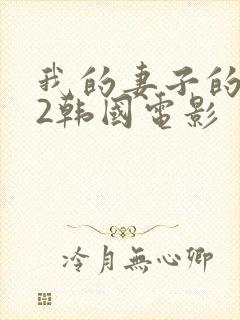 我的妻子的
2韩国電影
冷月無心卿